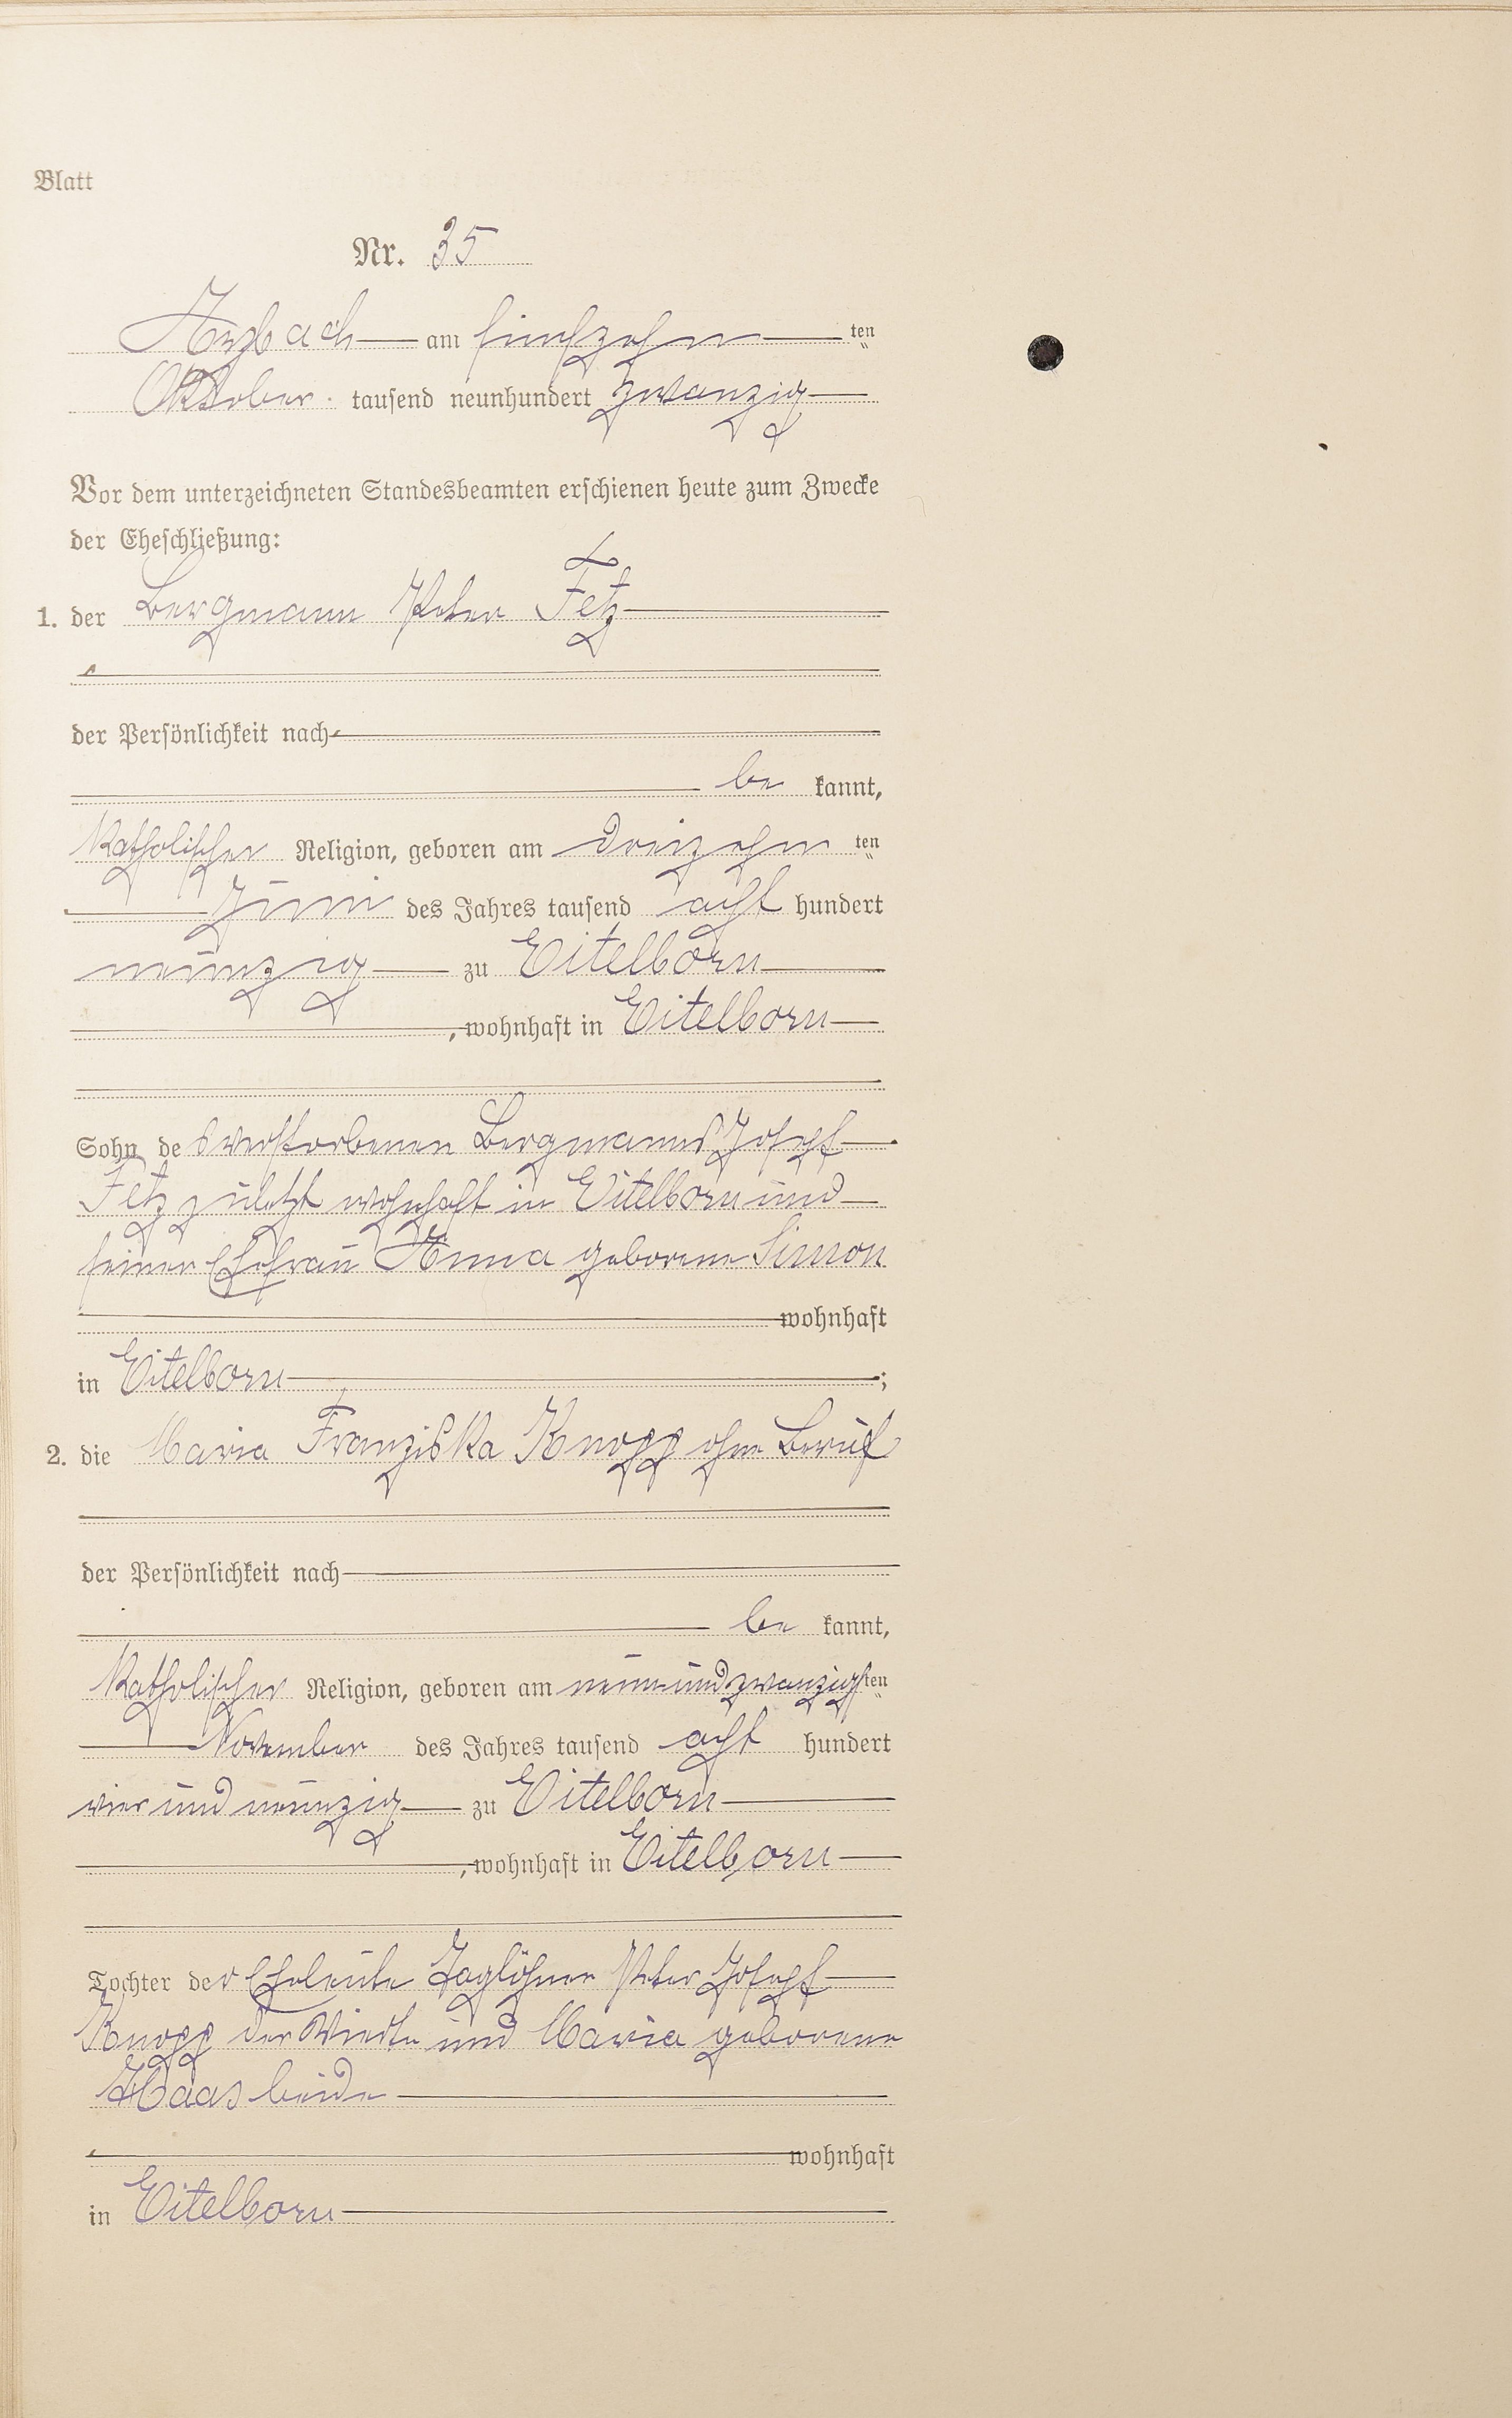 Blatt
Nr. 35
Arzbach am fünfzehn ten
Oktober tausend neunhundert zwanzig
Vor dem unterzeichneten Standesbeamten erschienen heute zum Zwecke
der Eheschließung:
1. der Bergmann Peter Fetz
der Persönlichkeit nach
be kannt,
katholischer Religion, geboren am dreizehn ten
Juni des Jahres tausend acht hundert
neunzig zu Eitelborn
, wohnhaft in Eitelborn
Sohn des verstorbenen Bergmanns Joseph
Fetz zuletzt wohnhaft in Eitelborn und
seiner Ehefrau Anna geborene Simon
wohnhaft
in Eitelborn ;
2. die Maria Franziska Knopp ohne Beruf
der Persönlichkeit nach
be kannt,
katholischer Religion, geboren am neunundzwanzigsten
November des Jahres tausend acht hundert
vier und neunzig zu Eitelborn
, wohnhaft in Eitelborn
Tochter der Eheleute Taglöhner Peter Joseph
Knopp der Vierte und Maria geborene
Haas beide
wohnhaft
in Eitelborn